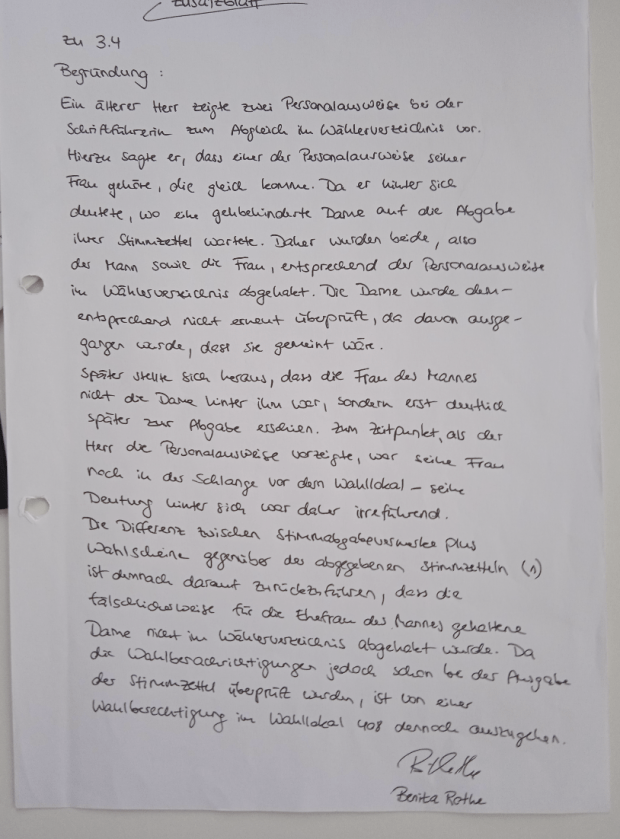 Zusatzblatt
Zu 3.4
Begründung:
Ein älterer Herr zeigte zwei Personalausweise bei der
Schriftführerin zum Abgleich im Wählerverzeichnis vor.
Hierzu sagte er, dass einer der Personalausweise seiner
Frau gehöre, die gleich komme. Da er hinter sich
deutete, wo eine gehbehinderte Dame auf die Abgabe
ihrer Stimmzettel wartete. Daher wurden beide, also
der Mann sowie die Frau, entsprechend der Personalausweise
im Wählerverzeichnis abgehakt. Die Dame wurde dem-
entsprechend nicht erneut überprüft, da davon ausge-
gangen wurde, dass sie gemeint wäre.
Später stellte sich heraus, dass die Frau des Mannes
nicht die Dame hinter ihm war, sondern erst deutlich
später zur Abgabe erschien. Zum Zeitpunkt, als der
Herr die Personalausweise vorzeigte, war seine Frau
noch in der Schlange vor dem Wahllokal – seine
Deutung hinter sich war daher irreführend.
Die Differenz zwischen Stimmabgabevermerke plus
Wahlscheine gegenüber der abgegebenen Stimmzetteln (1)
ist demnach darauf zurückzuführen, dass die
fälschlicherweise für die Ehefrau des Mannes gehaltene
Dame nicht im Wählerverzeichnis abgehakt wurde. Da
die Wahlbenachrichtigungen jedoch schon bei der Ausgabe
der Stimmzettel überprüft wurden, ist von einer
Wahlberechtigung im Wahllokal 408 dennoch auszugehen.
Benita Rothe